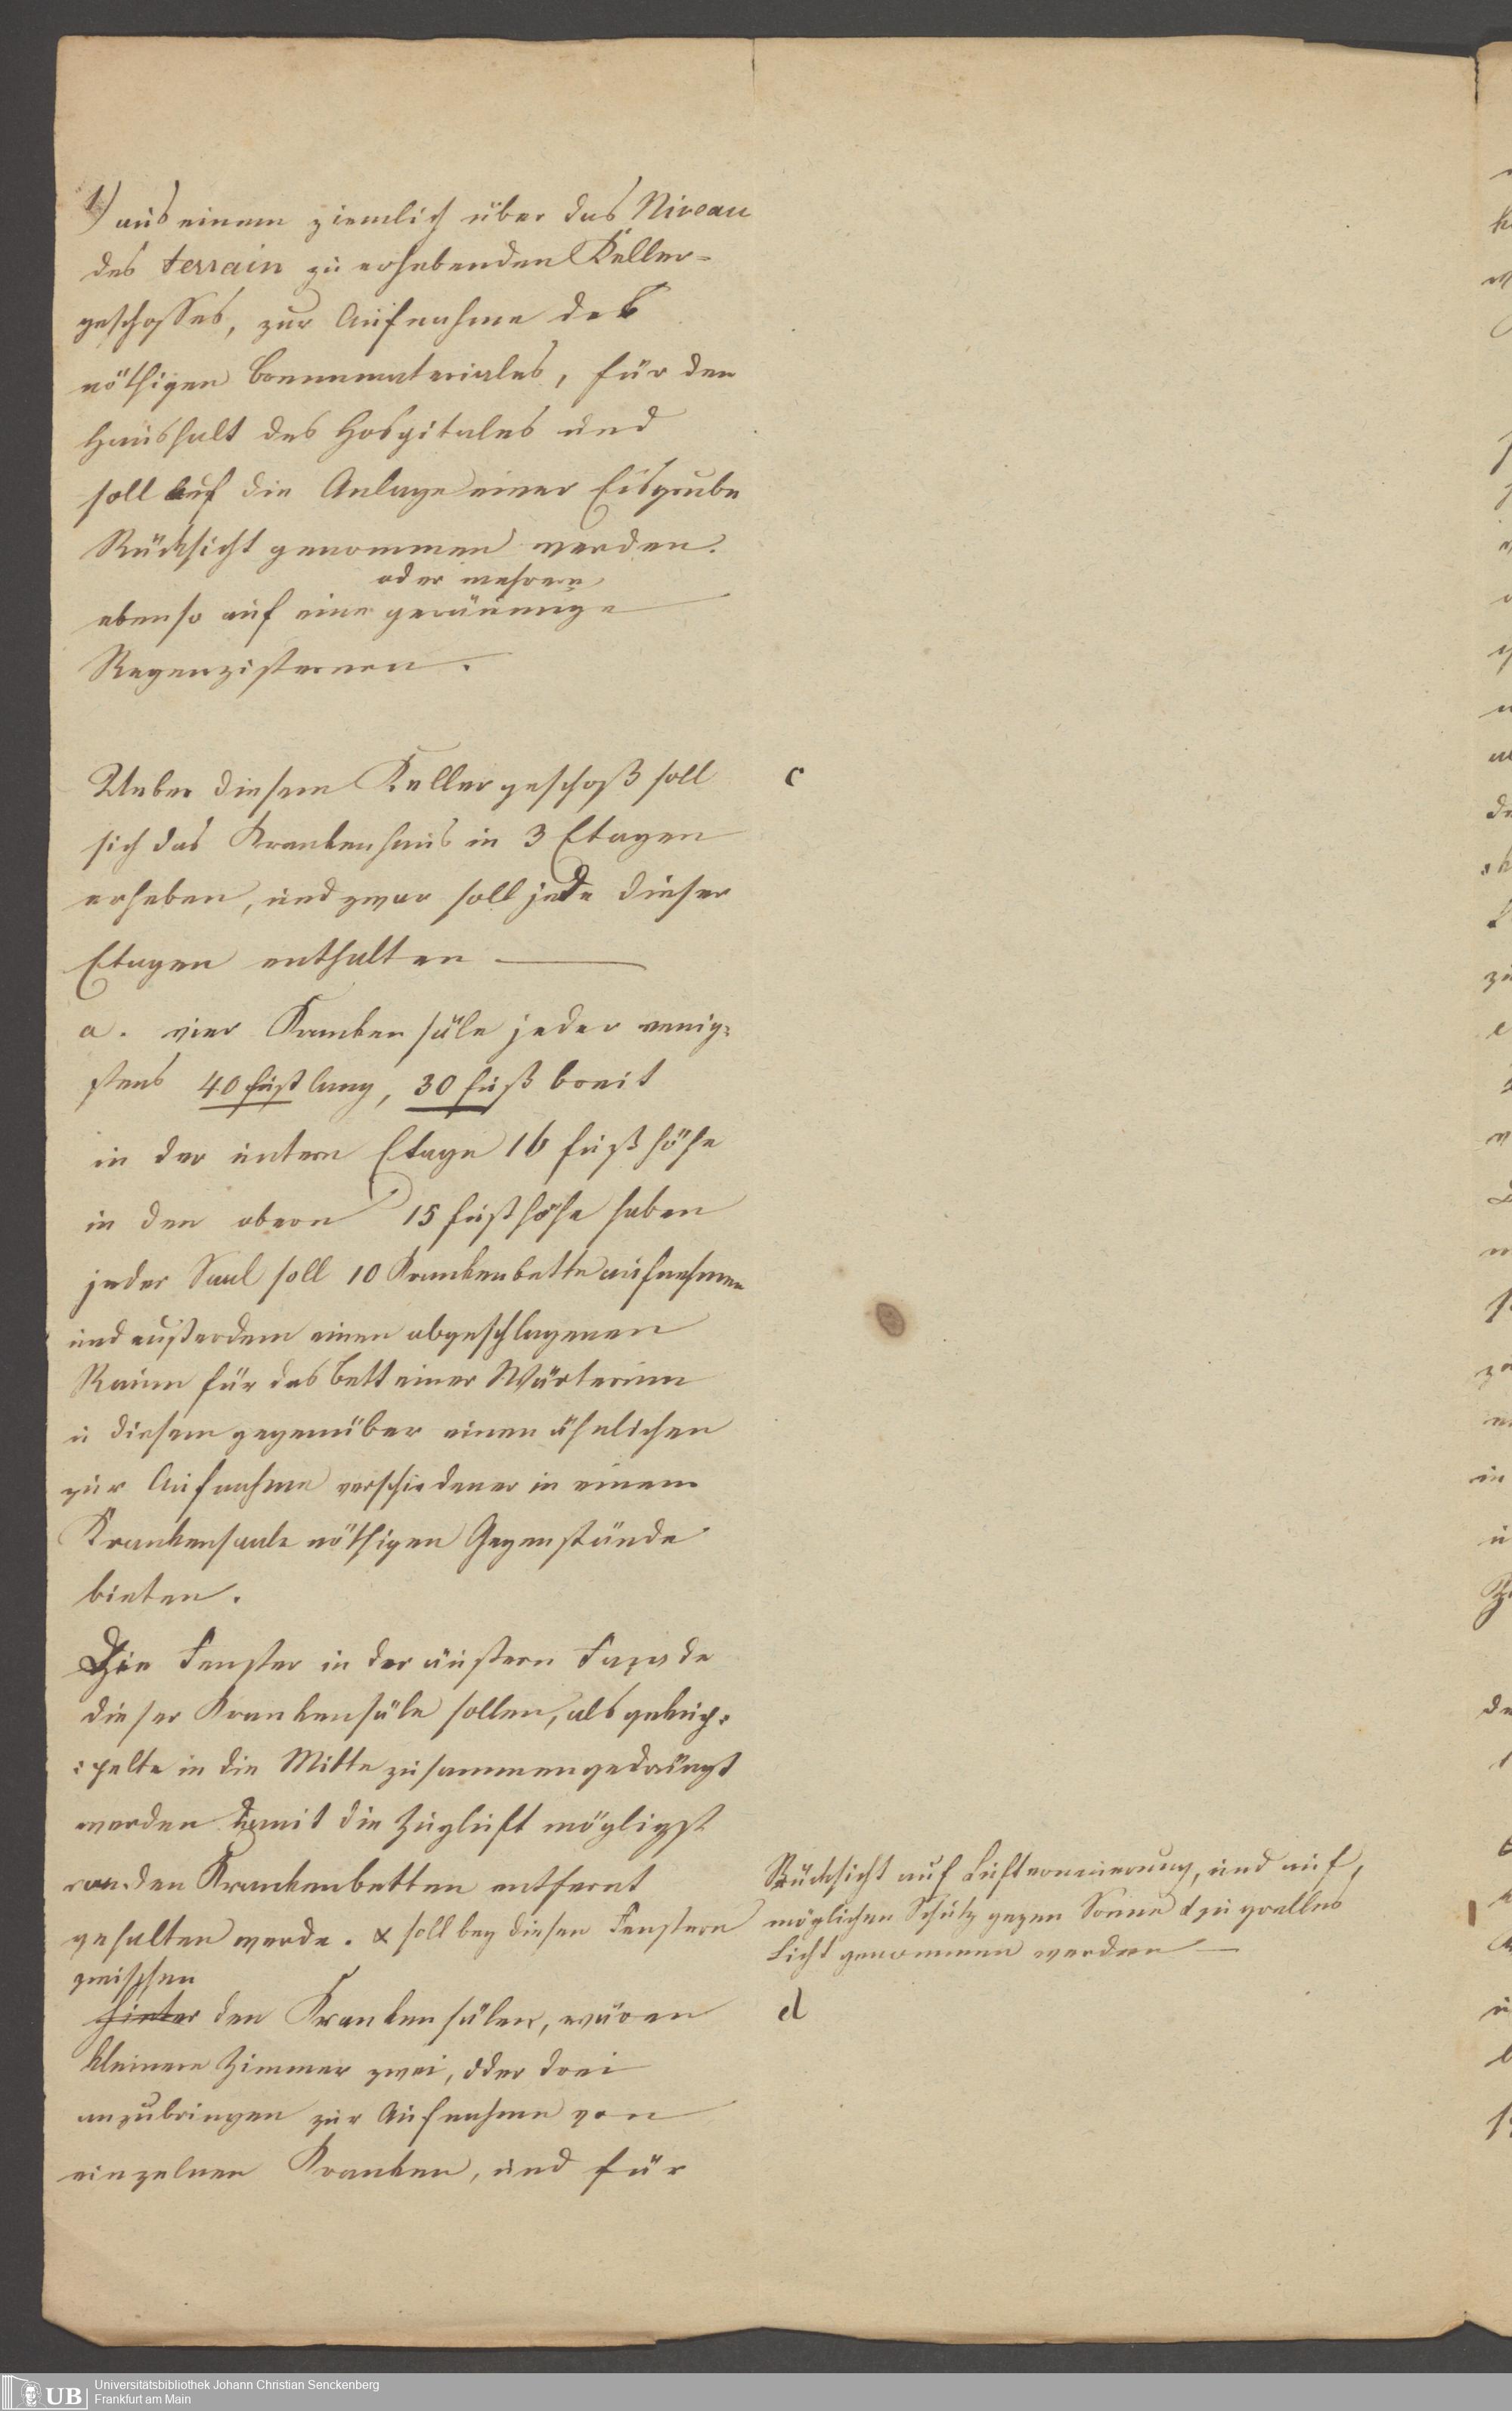 1) aus einem ziemlich über das Niveau
des terrain zu erhebenden Keller-
geschosses, zur Aufnahme des
nöthigen Brennmateriales, für den
Haushalt des Hospitales und
soll auf die Anlage einer Eisgrube
Rücksicht genommen werden.
oder mehrere
ebenso auf eine geräumige
Regenzisternen.
Ueber diesem Kellergeschoß soll
sich das Krankenhaus in 3 Etagen
erheben, und zwar soll jede dieser
Etagen enthalten —
a. vier Krankensäle jeder wenig-
stens 40 Fuß lang, 30 Fuß breit
in der untern Etage 16 Fuß höhe
in den obern 15 Fuß höhe haben
jeder Saal soll 10 Krankenbette aufnehmen
und außerdem einen abgeschlagenen
Raum für das Bett einer Wärterinn
u diesem gegenüber einen ähnlichen
zur Aufnahme verschiedener in einem
Krankensaale nöthigen Gegenstände
bieten.
Die Fenster in der äußern Façade
dieser Krankensäle sollen, als gekup-
pelte in die Mitte zusammengedrängt
werden damit die Zugluft möglichst
von den Krankenbetten entfernt
gehalten werde. & soll bey diesen Fenstern
zwischen
hinter den Krankensälen, wären
kleinere Zimmer zwei, oder drei
anzubringen zur Aufnahme von
einzelnen Kranken, und für
c
Rücksicht auf Lufterneuerung, und auf
möglichen Schutz gegen Sonne & zu grelles
Licht genommen werden —
d
Universitätsbibliothek Johann Christian Senckenberg
Frankfurt am Main
UB